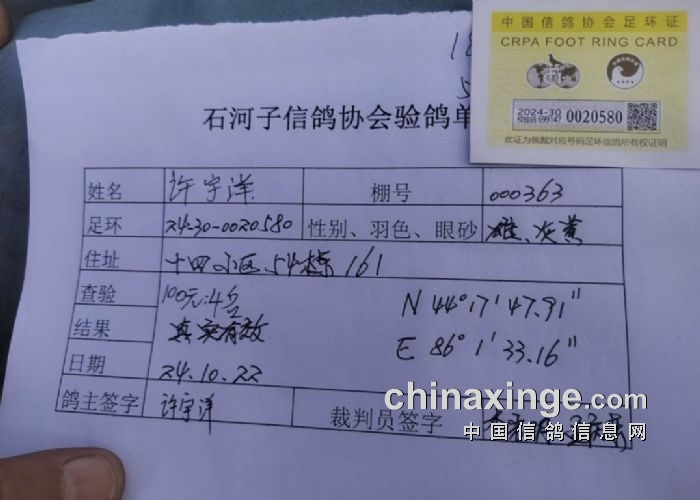 中国信鸽协会足环证
CRPA FOOT RING CARD
2024-30
校验码 699147 0020580
此证为佩戴对应号码足环信鸽所有权证明
石河子信鸽协会验鸽单
姓名 许宇洋 棚号 000363
足环 24-30-0020580 性别、羽色、眼砂 雄、灰黄
住址 十四小区54栋161
查验 100元:4台 N 44°17'47.91"
结果 真实有效 E 86°1'33.16"
日期 24.10.22
鸽主签字 许宇洋 裁判员签字
chinaxinge.com
中国信鸽信息网